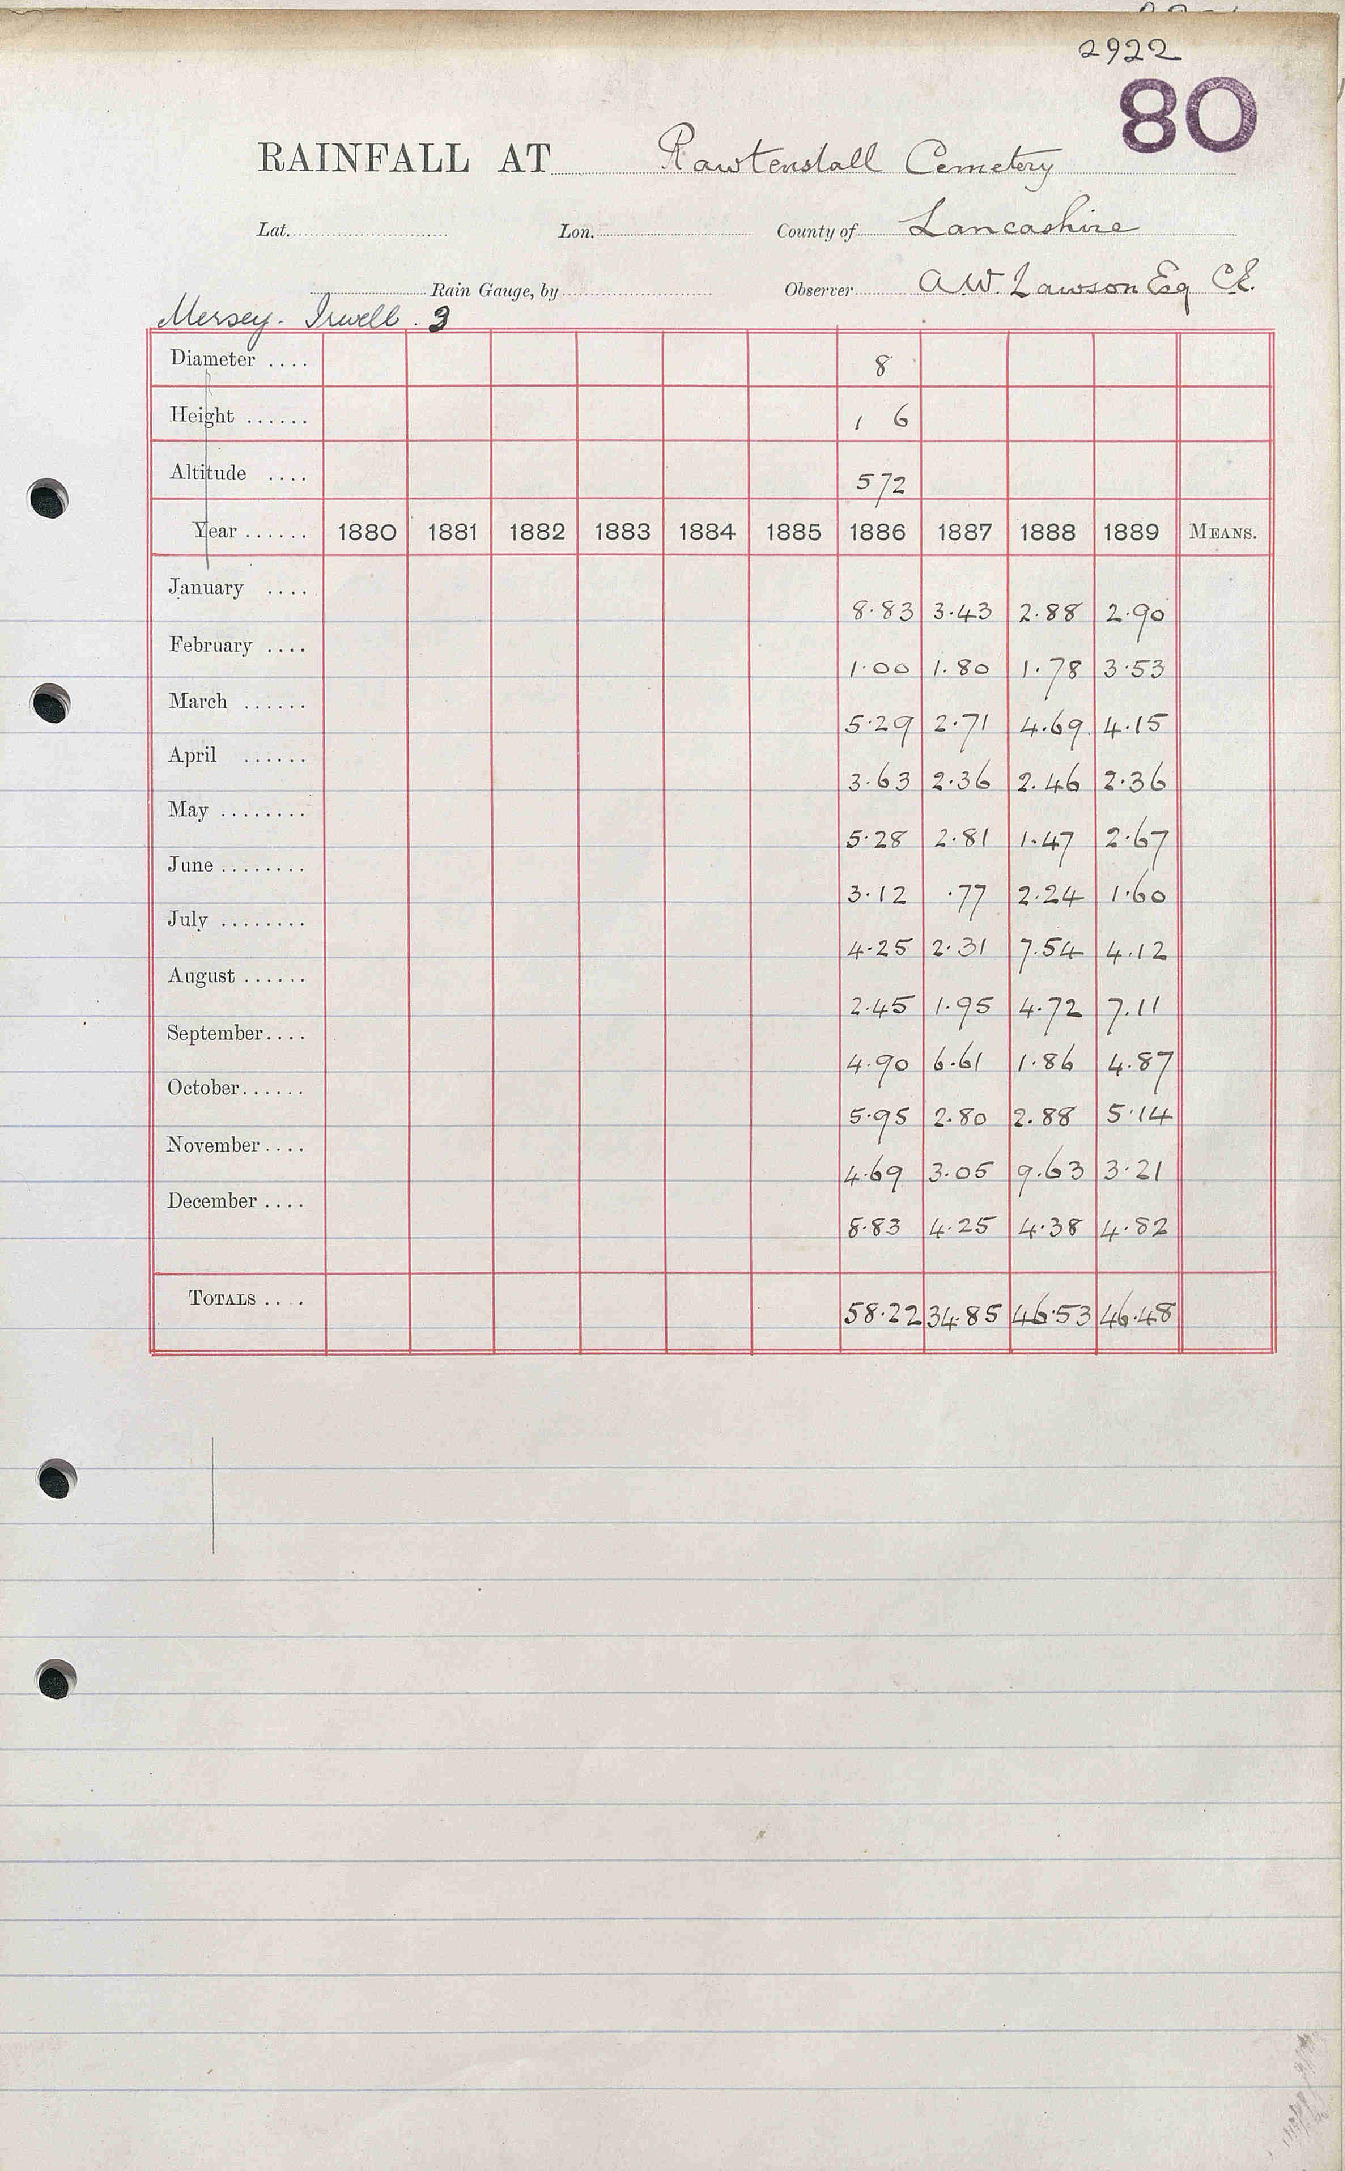 2922
80
RAINFALL AT Rawtenstall Cemetery
Lat. Lon. County of Lancashire
Rain Gauge, by Observer A.W. Lawson Esq C.E.
Mersey. Irwell. 3
Diameter .... 8
Height ...... 1 6
Altitude .... 572
Year ...... 1880 1881 1882 1883 1884 1885 1886 1887 1888 1889 MEANS.
January .... 8.83 3.43 2.88 2.90
February .... 1.00 1.80 1.78 3.53
March ...... 5.29 2.71 4.69 4.15
April ...... 3.63 2.36 2.46 2.36
May ........ 5.28 2.81 1.47 2.67
June ........ 3.12 .77 2.24 1.60
July ........ 4.25 2.31 7.54 4.12
August ...... 2.45 1.95 4.72 7.11
September .... 4.90 6.61 1.86 4.87
October ...... 5.95 2.80 2.88 5.14
November .... 4.69 3.05 9.63 3.21
December .... 8.83 4.25 4.38 4.82
TOTALS .... 58.22 34.85 46.53 46.48